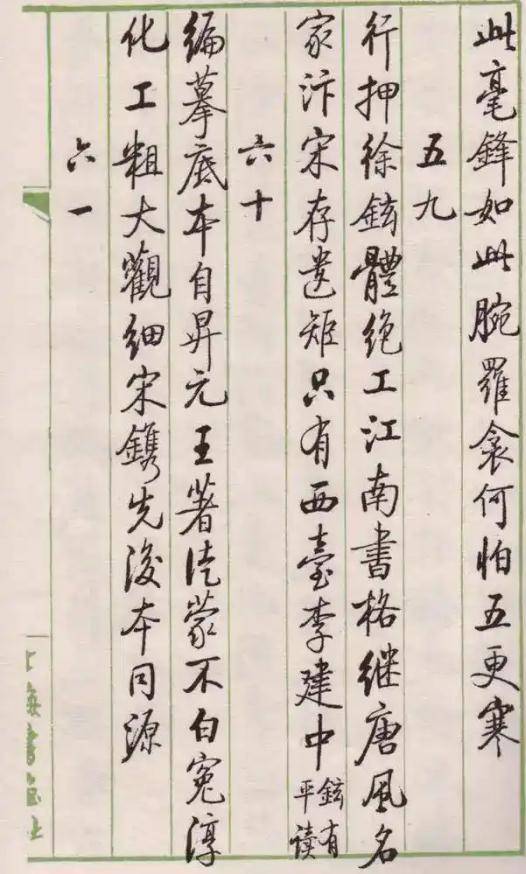 此毫鋒如此腕羅衾何怕五更寒
五九
行押徐鉉體絶工江南書格继唐風名
家汴宋存遗矩只有西臺李建中鉉有
平读
六十
編摹底本自昇元王著徒蒙不白冤淳
化工粗大觀细宋鐫先後本同源
六一